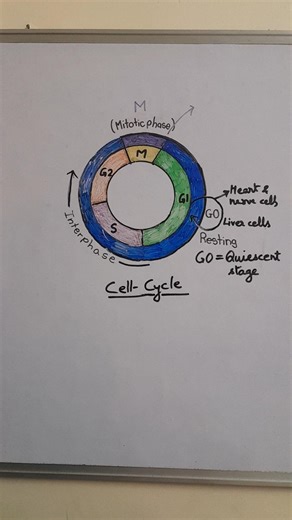 M
(Mitotic phase)
M
G2
G1
S
Interphase
GO
Heart &
nerve cells
Liver cells
Resting
GO = Quiescent
stage
Cell-Cycle